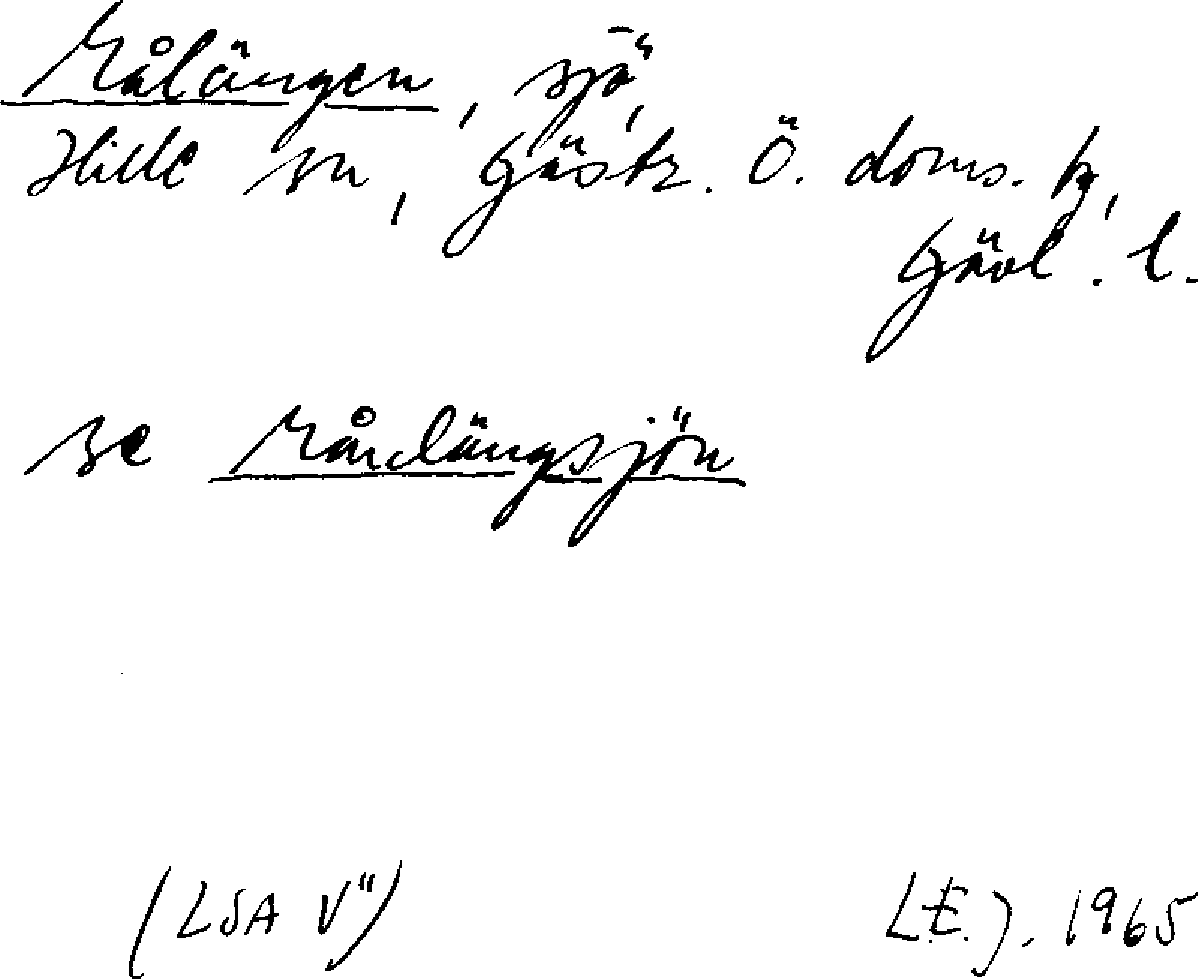 Målängen, sjö,
Hille sn, Gästr. Ö. doms. h,
Gävl. l.
se Mårdängsjön
(LSA V")
L.E.J. 1965